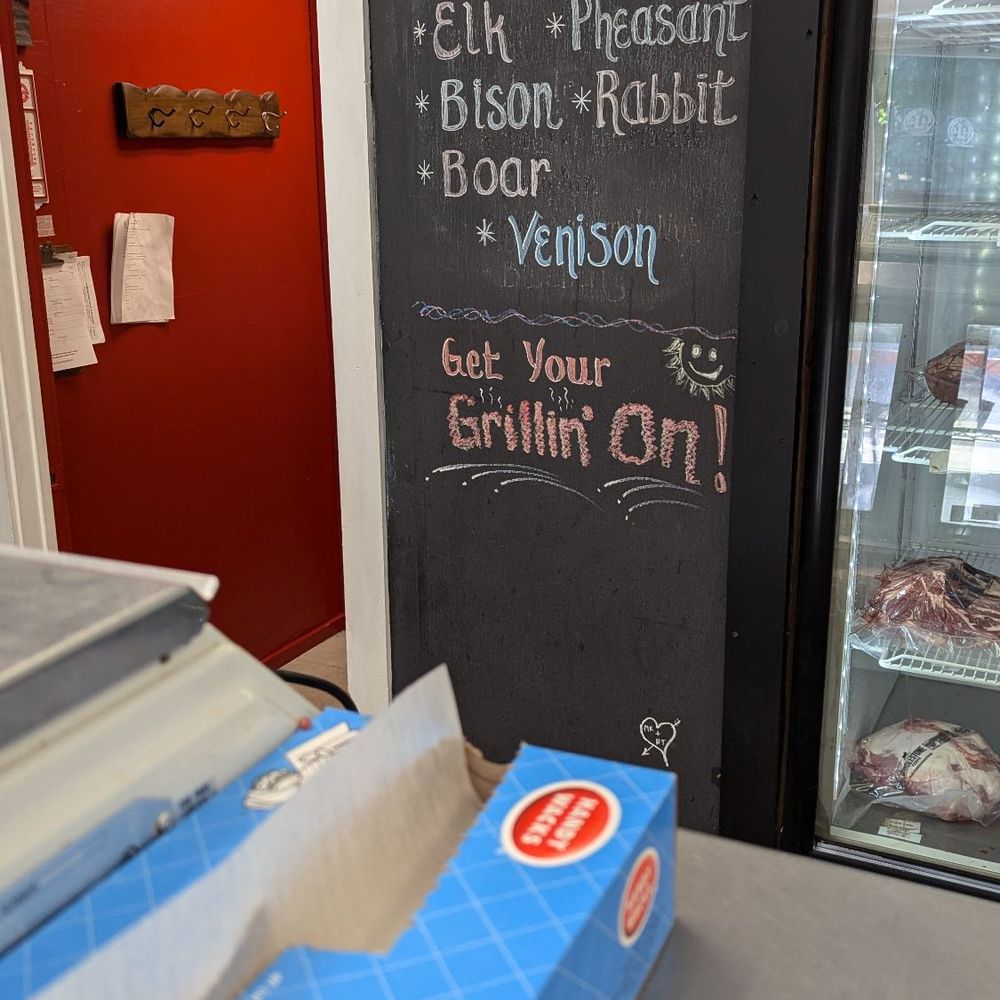 *Elk *Pheasant
*Bison *Rabbit
*Boar
*Venison
Get Your
Grillin' On!
MK
+
HANDY
WACKS